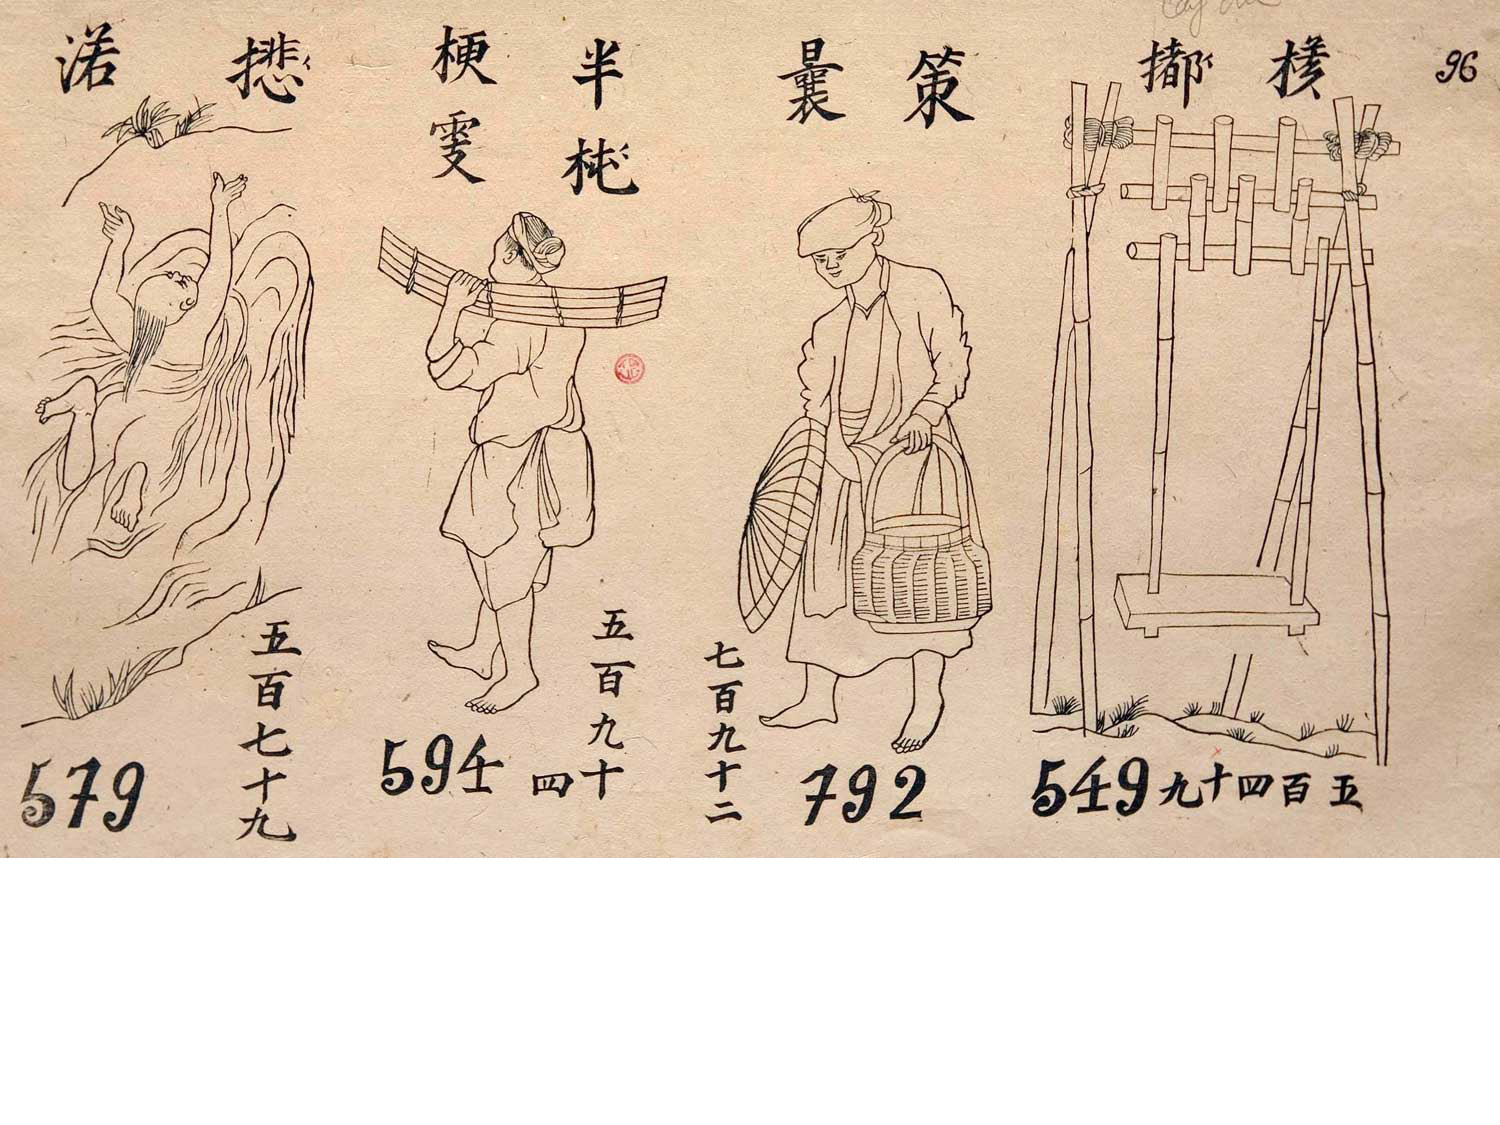 96
549
五百四十九
策曩
792
七百九十二
半
梗雯
594
五百九十四
渃
579
五百七十九